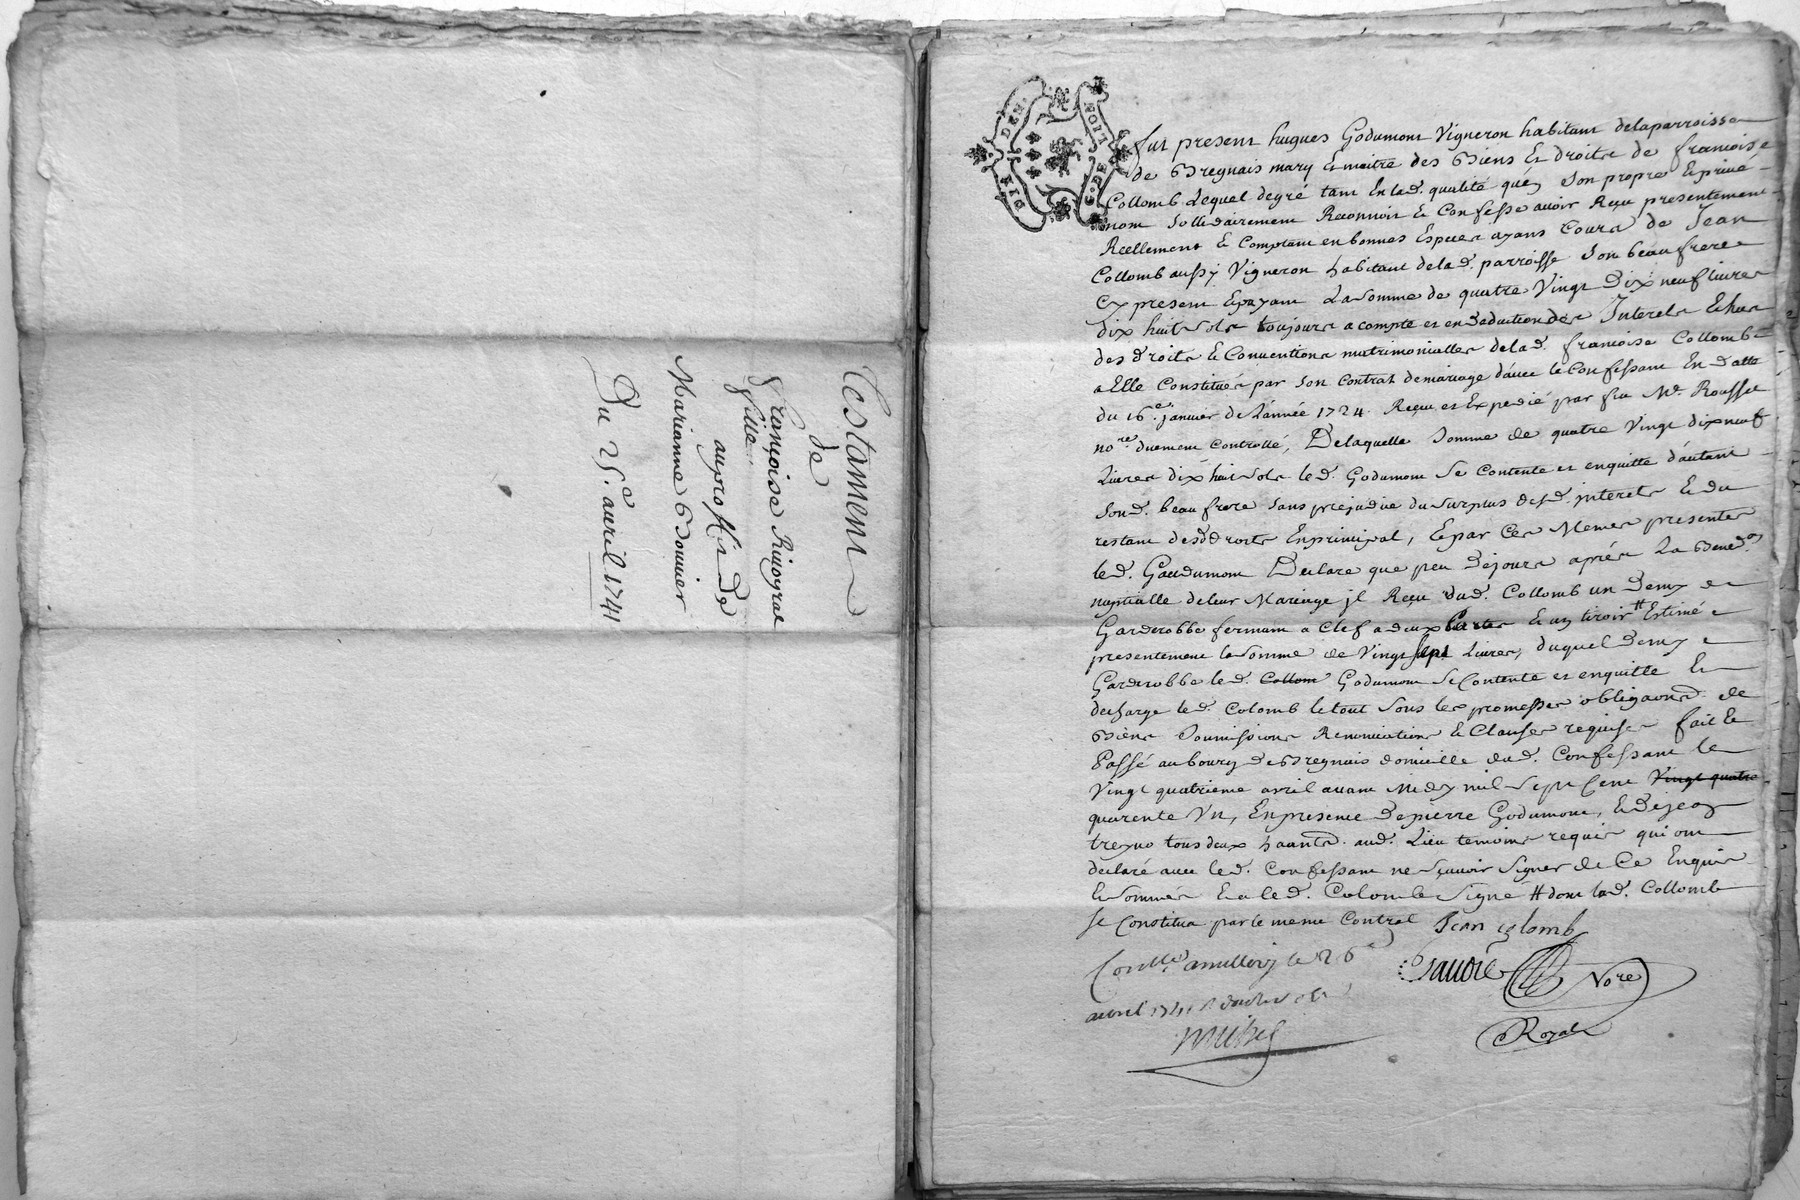 Testament
de
Françoise Rivoyral
fille
au proffit de
Marianne Bouvier
Du 25e. avril 1741
GNAL. DE LION
DIX DEN.
fut present hugues Godumont Vigneron habitant delaparroisse
de Bregnais mary & maitre des Biens Et droits de francoise
Collomb Lequel degré tant En lad. qualité qu'en Son propre & privé
nom Sollidairement Reconnoit & Confesse avoir Reçu presentement
Reellement & Comptant en bonnes Especes ayans Cours de Jean
Collomb aussy Vigneron habitant delad. parroisse Son beaufrere
Cy present & payant La Somme de quatre Vingt Dix neuf livres
dix huit Sols toujours a compte et en Deduction des Interets Echus
des droits & Conventions matrimonialles delad. francoise Collomb
a Elle Constitués par Son Contrat demariage d'avec le Confessant En datte
du 16e. janvier de l'année 1724. Reçu et Expedié par feu Me. Rousset
nore. duement Controllé, Delaquelle Somme de quatre Vingt dixneuf
Livres dix huit Sols led. Godumont Se Contente et enquitte d'autant
Sond. beaufrere Sans prejudice du Surplus desd. interets & du
restant desd. droits En principal, & par Ces Memes presentes
led. Godumont Declare que peu de jours après La Bened.on
nuptialle deleur Mariage jl Reçu dud. Collomb un Demy
Garderobbe fermant a Clef a deux portes & un tiroir # Estimé
presentement la Somme de Vingt sept Livres, duquel Demy
Garderobbe led. Collom Godumont Se Contente et enquitte &
decharge led. Colomb le tout Sous les promesses obligaons. de
Biens Soumissions Renonciations & Clauses requises fait &
Passé au bourg de Bregnais domicille dud. Confessant le
Vingt quatrieme avril avant Midy mil Sept Cent Vingt quatre
quarente Un, En presence de pierre Godumont, & de jean
treyve tous deux habitants. aud. Lieu temoins requis qui ont
declaré avec led. Confessant ne Sçavoir Signer de Ce Enquis
& Sommés & a led. Colomb Signé # dont lad. Collomb
se Constitua par le meme Contrat Jean Colomb
Contllé. a millery le 26e
avril 1741
Nore
Royal